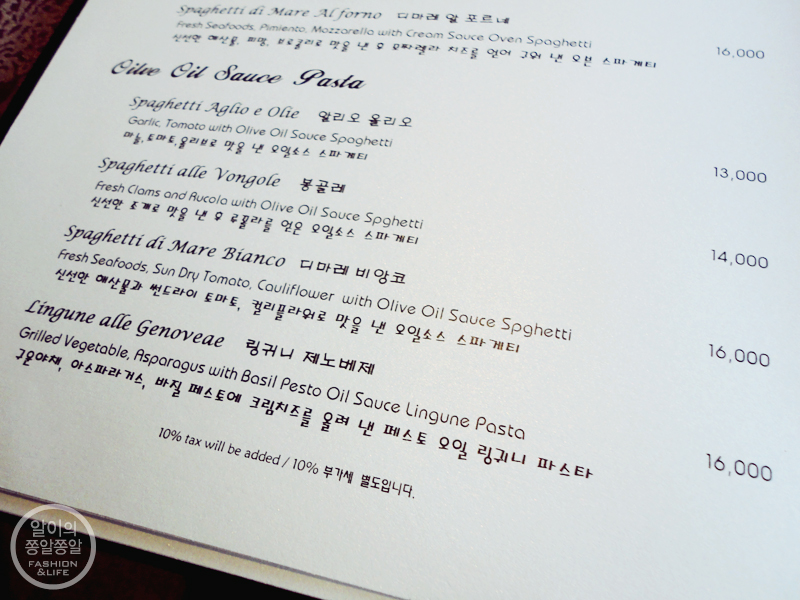 Spaghetti di Mare Al forno 디마레 알 포르네
Fresh Seafoods, Pimiento, Mozzarella with Cream Sauce Oven Spaghetti
신선한 해산물, 피망, 브로콜리로 맛을 낸 후 모짜렐라 치즈를 얹어 구워 낸 오븐 스파게티
16,000
Oilve Oil Sauce Pasta
Spaghetti Aglio e Olie 알리오 올리오
Garlic, Tomato with Olive Oil Sauce Spaghetti
마늘,토마토,올리브로 맛을 낸 오일소스 스파게티
13,000
Spaghetti alle Vongole 봉골레
Fresh Clams and Rucola with Olive Oil Sauce Spghetti
신선한 조개로 맛을 낸 후 루꼴라를 얹은 오일소스 스파게티
14,000
Spaghetti di Mare Bianco 디마레 비앙코
Fresh Seafoods, Sun Dry Tomato, Cauliflower with Olive Oil Sauce Spghetti
신선한 해산물과 썬드라이 토마토, 컬리플라워로 맛을 낸 오일소스 스파게티
16,000
Lingune alle Genoveae 링귀니 제노베제
Grilled Vegetable, Asparagus with Basil Pesto Oil Sauce Lingune Pasta
구운야채, 아스파라거스, 바질 페스토에 크림치즈를 올려 낸 페스토 오일 링귀니 파스타
16,000
10% tax will be added / 10% 부가세 별도입니다.
알이의
쫑알쫑알
FASHION
&LIFE